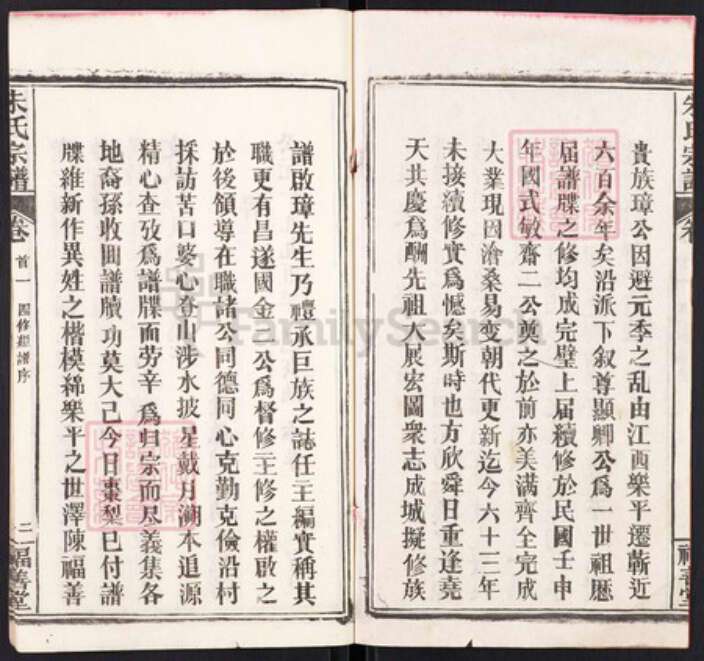 朱氏宗譜
貴族璋公因避元季之乱由江西樂平遷蘄近
六百余年矣沿派下叙尊顯卿公爲一世祖歷
届譜牒之修均成完璧上届續修於民國壬申
年國式敏齋二公奠之於前亦美滿齊全完成
大業現因滄桑易变朝代更新迄今六十三年
未接續修實爲憾矣斯時也方欣舜日重逢堯
天共慶爲酬先祖大展宏圖衆志成城擬修族
福善堂
譜啟璋先生乃禮承巨族之誌任主編實稱其
職更有昌遂國金二公爲督修主修之權啟之
於後領導在職諸公同德同心克勤克儉沿村
採訪苦口婆心登山涉水披星戴月溯本追源
精心查攷爲譜牒而劳辛爲归宗而尽義集各
地裔孫收囬譜牘功莫大已今日棗梨已付譜
牒維新作異姓之楷模綿樂平之世澤陳福善
朱氏宗譜
卷首一
四修經譜序
二
福善堂
FamilySearch